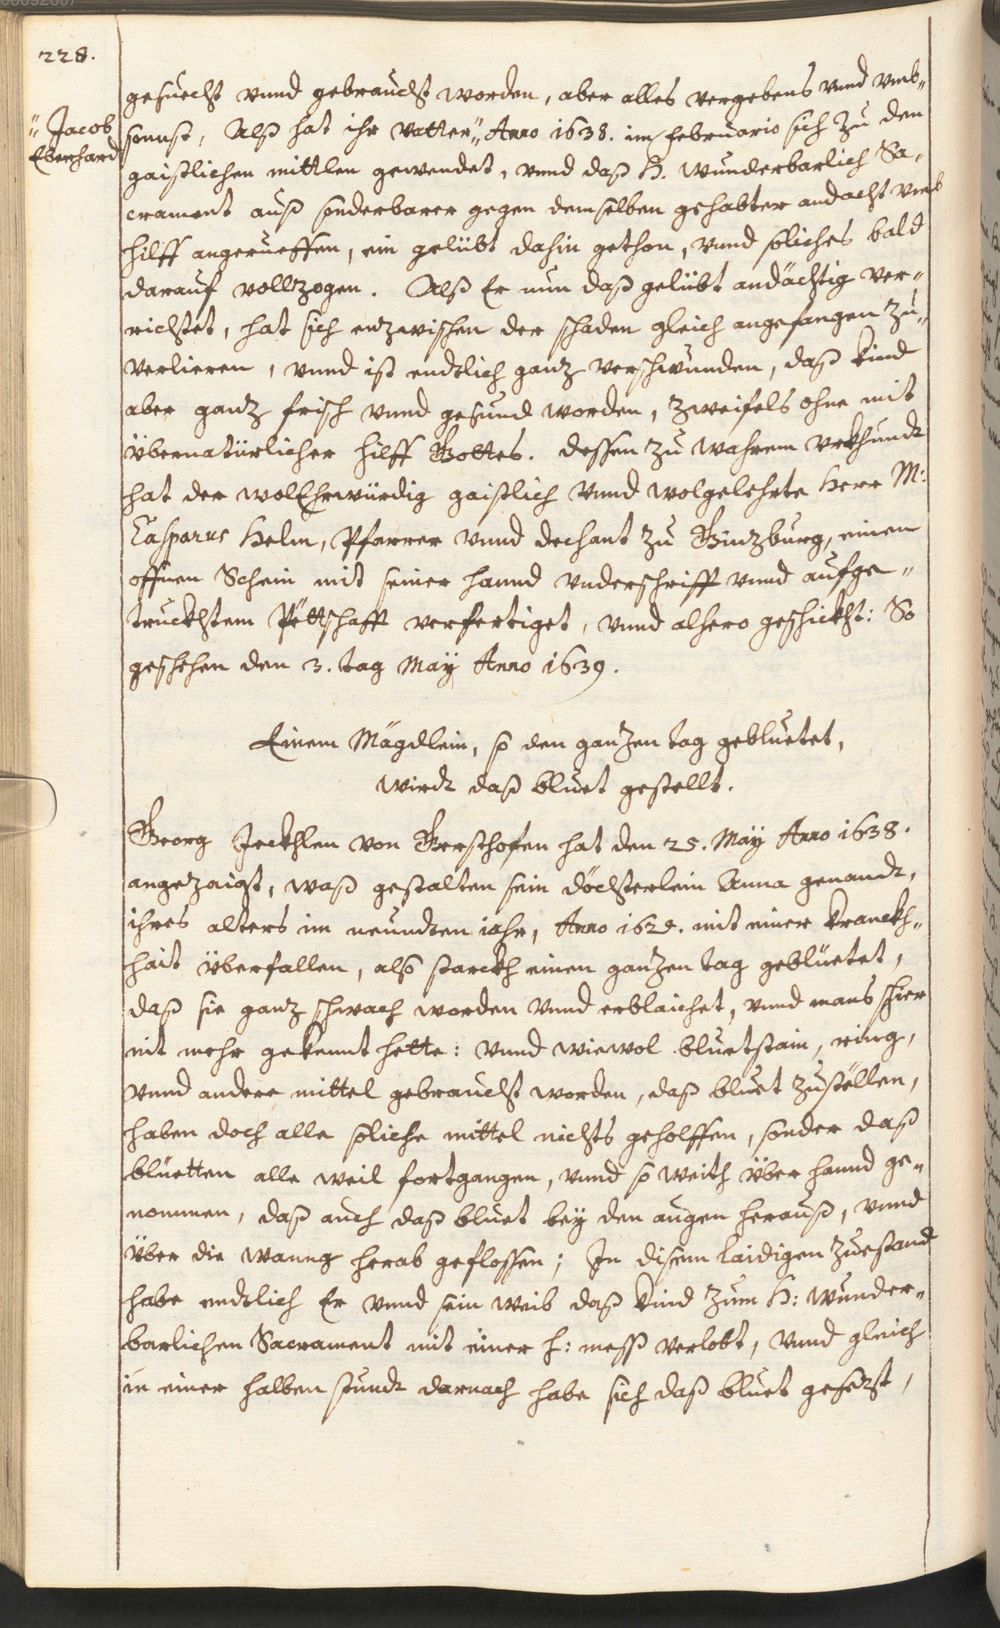 228.
gesuecht vnnd gebraucht worden, aber alles vergebens vnnd vmb„
„ Jacob
Eberhard
sonnst, Alß hat ihr vatter „ Anno 1638. im februario sich zu den
gaistlichen mittlen gewendet, vnnd daß H. wunderbarlich Sa„
crament auß sonderbarer gegen demselben gehabter andacht vmb
hilff angerueffen, ein gelübt dahin gethon, vnnd soliches bald
darauf vollzogen. Alß Er nun daß gelübt andächtig ver„
richtet, hat sich entzwischen der schaden gleich angefangen zu„
verlieren, vnnd ist endtlich gantz verschwunden, daß kind
aber gantz frisch vnnd gesund worden, zweifels ohne mit
übernatürlicher hilff Gottes. dessen zu wahrem vrkhundt
hat der wolEhrwürdig gaistlich vnnd wolgelehrte Herr M:
Casparus Helm, Pfarrer vnnd dechant zu Gintzburg, einen
offnen Schein mit seiner hannd vnderschrifft vnnd aufge„
truckhstem Pettschafft verfertiget, vnnd alhero geschickht: So
geschehen den 3. tag Maÿ Anno 1639.
Einem Mägdlein, so den gantzen tag gebluetet,
wirdt daß bluet gestellt.
Georg Jeckhlen von Gersthofen hat den 25. Maÿ Anno 1638.
angezaigt, waß gestalten sein döchterlein Anna genandt,
ihres alters im neundten iahr, Anno mit einer kranckh„
hait überfallen, also starckh einen gantzen tag gebluetet,
daß sie gantz schwach worden vnnd erblaichet, vnnd mans schier
nit mehr gekennt hette: vnnd wiewol bluetstain, ring,
vnnd andere mittel gebraucht worden, daß bluet zustellen,
haben doch alle soliche mittel nichts geholffen, sonder daß
bluetten alle weil fortgangen, vnnd so weith über hannd ge„
nommen, daß auch daß bluet beÿ den augen herauß, vnnd
über die wanng herab geflossen; In disem laidigen zuestand
habe endtlich Er vnnd sein weib daß kind zum H: wunder„
barlichen Sacrament mit einer h: mess verlobt, vnnd gleich
in einer halben stundt darnach habe sich daß bluet gesetzt,